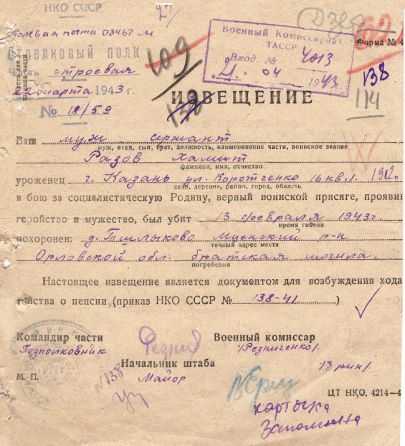 НКО СССР
Полевая почта 03467 м
Стрелковый полк
Часть строевая
марта 1943 г
№ 18/59
27
109
Военный Комиссариат
ТАССР
Вход. № 4013
04 1943
Форма № 4
138
114
ИЗВЕЩЕНИЕ
Ваш муж сержант
муж, отец, сын, брат, должность, наименование части, воинское звание
Разов Хамит
фамилия, имя, отчество
уроженец г. Казань ул. Коротченко 16 кв. 1. 1912
село, деревня, район, город, область
в бою за социалистическую Родину, верный воинской присяге, проявив
геройство и мужество, был убит 13 февраля 1943 г.
время гибели
похоронен: д. Мценский р-н
точный адрес места
Орловской обл. братская могила.
погребения
Настоящее извещение является документом для возбуждения хода
йства о пенсии (приказ НКО СССР № 138-41)
Командир части
Подполковник
Военный комиссар
/Резниченко/
Начальник штаба
Майор
М. П.
№138
ЦТ НКО, 4214-4
карточка
Заполнена